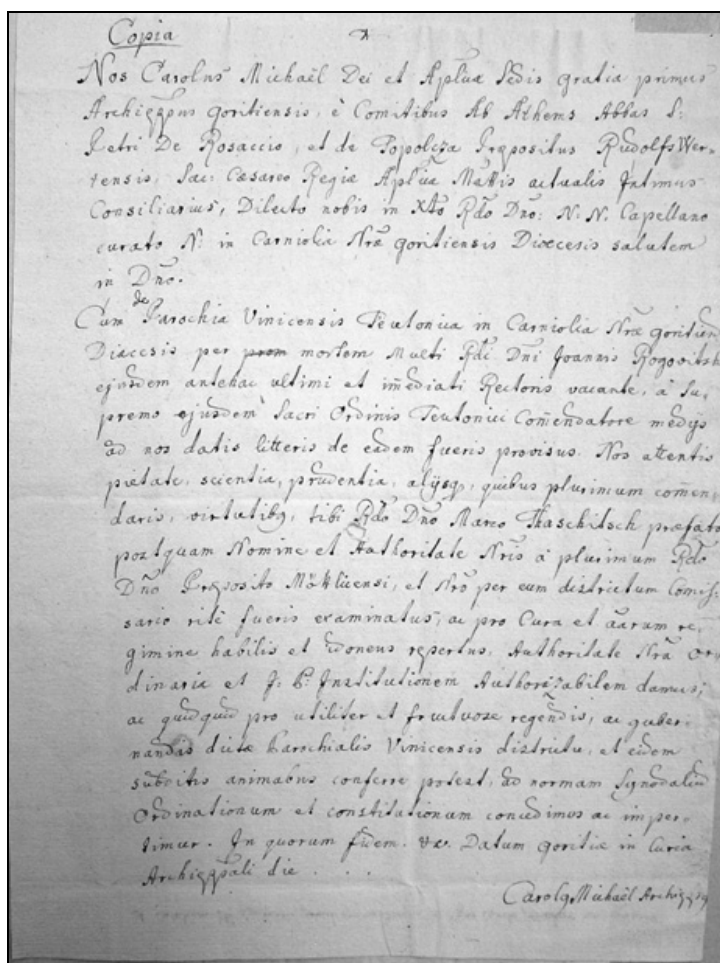 Copia
Nos Carolus Michaël Dei et Aplicæ Sedis gratia primus
Archieppus goritiensis, è Comitibus Ab Athems Abbas S:
Petri De Rosaccio, et de Topolcza Præpositus RudolfsWer=
tensis, Sac: Cæsareo Regiæ Aplicæ Mattis actualis Intimus
Consiliarius, Dilecto nobis in Xto Rdo Dno: N: N. Capellano
curato N: in Carniolia Nræ goritiensis Dioecesis salutem
in Dno.
Cum de Parochia Vinicensis Teutonica in Carniolia Nræ goritien
Diæcesis per mortem Multi Rdi Dni Joannis Rogovitsh
ejusdem antehac ultimi et imediati Rectoris vacante, à Su,
premo ejusdem Sacri Ordinis Teutonici Comendatore medijs
ad nos datis litteris de eadem fueris provisus. Nos attentis
pietate, scientia, prudentia, alijsq, quibus plurimum comen,
daris, virtutibq, tibi Rdo Dno Marco Thaschitsch præfato
postquam Nomine et Authoritate Nris à plurimum Rdo
Dno Præposito Mötlicensi, et Nro per eum districtum Comis,
sario ritè fueris examinatus, ac pro Cura et aarum re,
gimine habilis et idoneus repertus, Authoritate Nra or
dinaria et J: P: Institutionem Authorizabilem damus,
ac quidquid pro utiliter et fructuose regendis, ac guber,
nandis dictæ Parochialis Vinicensis districtu, et eidem
subditis animabus conferre potest, ad normam Synodaliu
Ordinationum et constitutionum concedimus ac imper,
timur. In quorum fidem. &c. Datum goritiæ in Curia
Archieppali die . . .
Carolq Michaël Archieppq